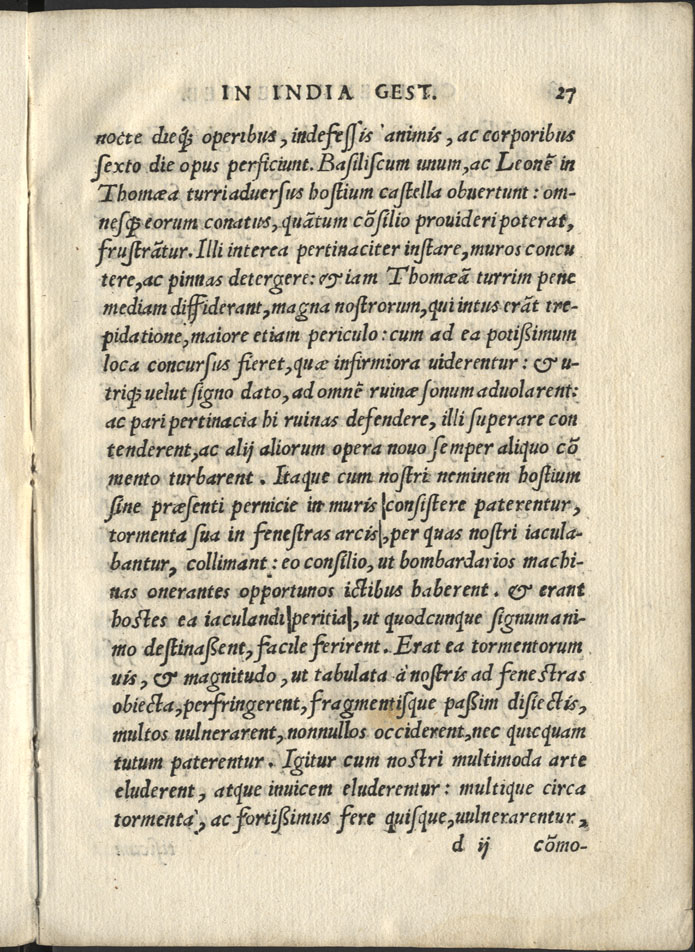 IN INDIA GEST. 27
nocte dieq́; operibus, indefeſſis animis, ac corporibus
ſexto die opus perficiunt. Baſiliſcum unum, ac Leonē in
Thomæa turri aduerſus hoſtium caſtella obuertunt: om-
neſq́; eorum conatus, quãtum cõſilio prouideri poterat,
fruſtrãtur. Illi interea pertinaciter inſtare, muros concu
tere, ac pinnas detergere: & iam Thomæã turrim pene
mediam diffiderant, magna noſtrorum, qui intus erãt tre-
pidatione, maiore etiam periculo: cum ad ea potißimum
loca concurſus fieret, quæ infirmiora uiderentur: & u-
triq́; uelut ſigno dato, ad omnē ruinæ ſonum aduolarent:
ac pari pertinacia hi ruinas defendere, illi ſuperare con
tenderent, ac alij aliorum opera nouo ſemper aliquo cõ
mento turbarent. Itaque cum noſtri neminem hoſtium
ſine præſenti pernicie in muris conſiſtere paterentur,
tormenta ſua in feneſtras arcis, per quas noſtri iacula-
bantur, collimant: eo conſilio, ut bombardarios machi-
nas onerantes opportunos ictibus haberent. & erant
hoſtes ea iaculandi peritia, ut quodcunque ſignum ani-
mo deſtinaßent, facile ferirent. Erat ea tormentorum
uis, & magnitudo, ut tabulata à noſtris ad feneſtras
obiecta, perfringerent, fragmentiſque paßim diſiectis,
multos uulnerarent, nonnullos occiderent, nec quicquam
tutum paterentur. Igitur cum noſtri multimoda arte
eluderent, atque inuicem eluderentur: multique circa
tormenta, ac fortißimus fere quiſque, uulnerarentur,
d ij cõmo-